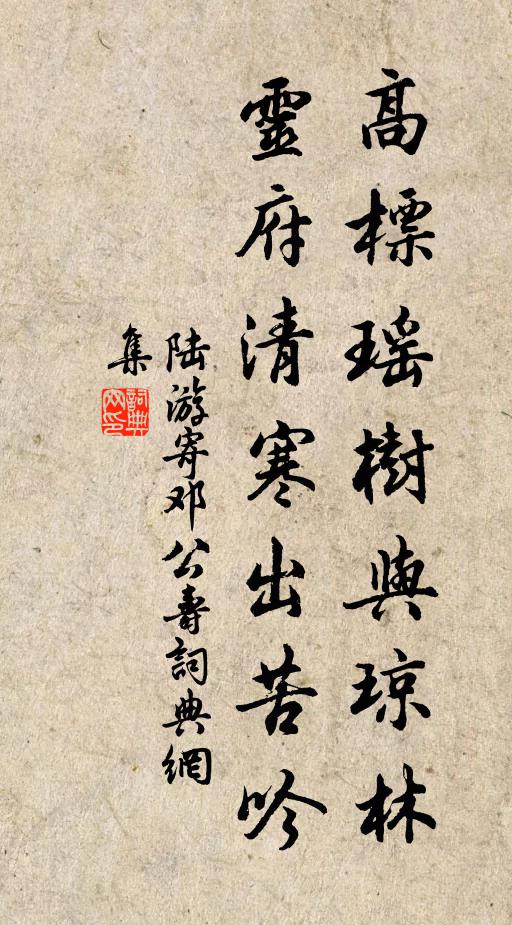 高標瑶樹與琼林
靈府清寒出苦吟
陆游寄邓公壽詞典網
集
詞典
网印